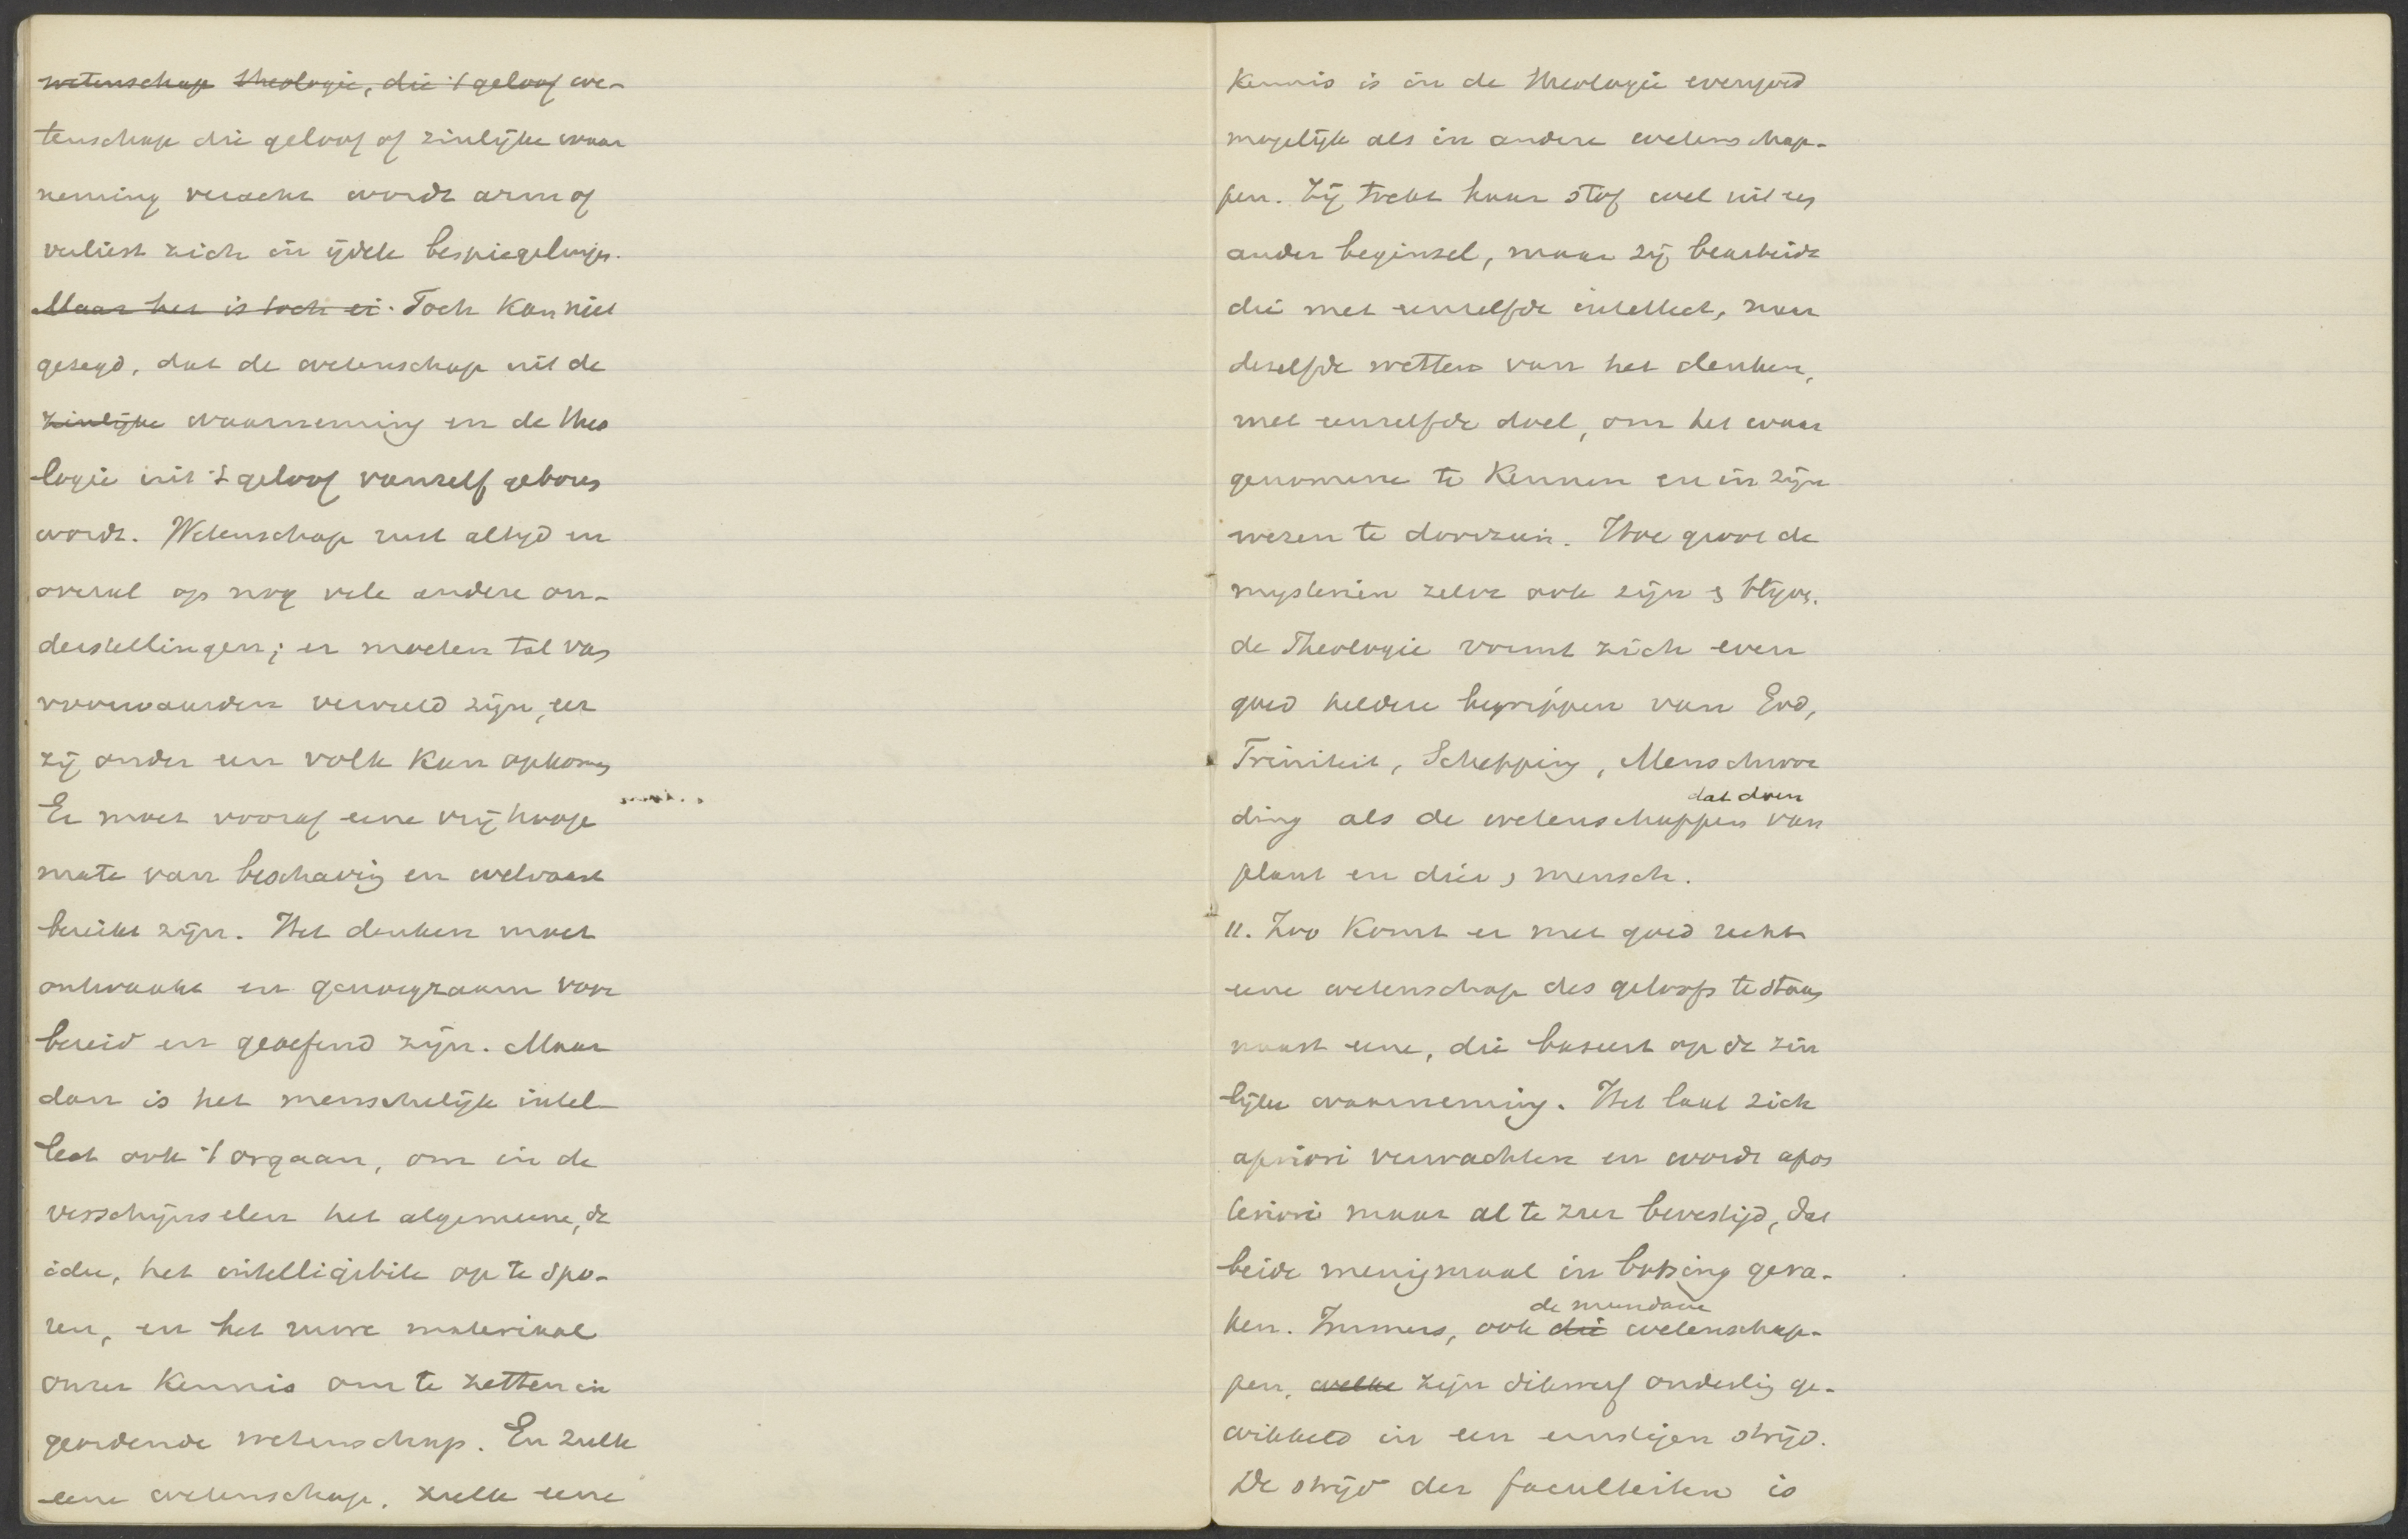 wetenschap theologie, die 't geloof we-
tenschap die geloof of zinlijke waar
neming veracht wordt arm of
verliest zich in ijdele bespiegelingen.
Maar het is toch ei. Toch kan niet
gezegd, dat de wetenschap uit de
zinlijke waarneming en de theo
logie uit 't geloof vanzelf geboren
wordt. Wetenschap rust altijd en
overal op nog vele andere on-
derstellingen; er moeten tal van
voorwaarden vervuld zijn, eer
zij onder een volk kan opkomen
Er moet vooraf eene vrij hooge
mate van beschaving en welvaart
bereikt zijn. Het denken moet
ontwaakt en genoegzaam voor
bereid en geoefend zijn. Maar
dan is het menschelijk intel
lect ook 't orgaan, om in de
verschijnselen het algemeene, de
idee, het intelligibile op te spo-
ren, en het ruwe materiaal
onzer kennis om te zetten in
geordende wetenschap. En zulk
eene wetenschap, zulk eene
kennis is in de theologie evengoed
mogelijk als in andere wetenschap-
pen. Zij trekt haar stof wel uit een
ander beginsel, maar zij bearbeidt
die met eenzelfde intellect, naar
dezelfde wetten van het denken,
met eenzelfde doel, om het waar
genomene te kennen en in zijn
wezen te doorzien. Hoe groot de
mysteriën zelve ook zijn & blijven,
de Theologie vormt zich even
goed heldere begrippen van God,
Triniteit, Schepping, Menschwor
dat doen
ding als de wetenschappen van
plant en dier & mensch.
11. Zoo komt er met goed recht
eene wetenschap des geloofs te staan
naast eene, die baseert op de zin
lijke waarneming. Het laat zich
apriori verwachten en wordt apos
teriori maar al te zeer bevestigd, dat
beide menigmaal in botsing gera-
de mundane
ken. Immers, ook die wetenschap-
pen, welke zijn dikwerf onderling ge-
wikkeld in een ernstigen strijd.
De strijd der faculteiten is